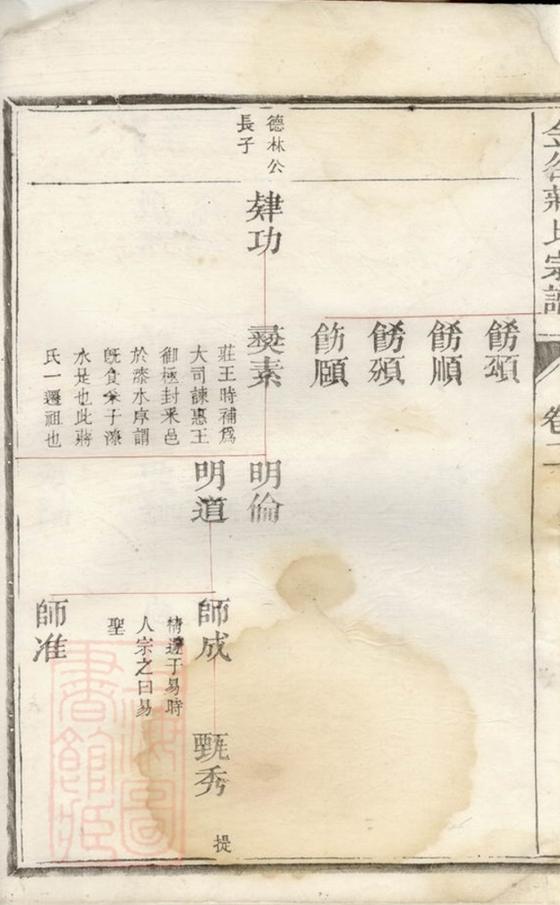 蔣氏宗譜
卷
餙頌
餙順
餙頵
餙願
德林公
長子
肄功
奬素
莊王時補爲
大司諫惠王
御極封釆邑
於漆水序謂
旣食釆子漆
水是也此蔣
氏一遷祖也
明倫
明道
師成
精邃于易時
人宗之曰易
聖
師准
甄秀
提